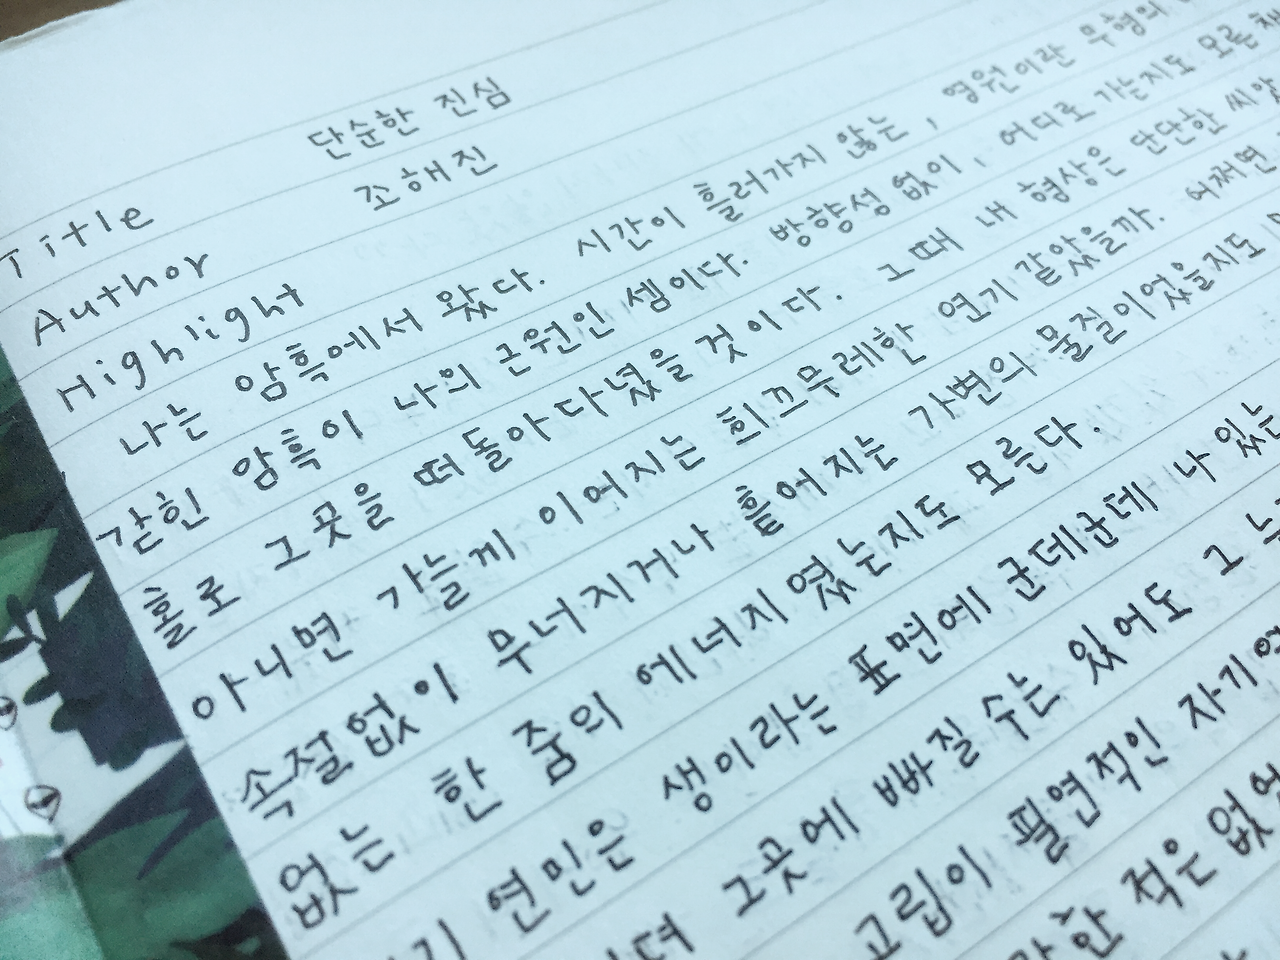 Title 단순한 진심
Author 조해진
Highlight
나는 암흑에서 왔다. 시간이 흘러가지 않는, 영원이란 무형의
갇힌 암흑이 나의 근원인 셈이다. 방향성 없이, 어디로 가는지도 모른 채
홀로 그곳을 떠돌아다녔을 것이다. 그때 내 형상은 단단한 씨앗
아니면 가늘게 이어지는 희끄무레한 연기 같았을까. 어쩌면
속절없이 무너지거나 흩어지는 가변의 물질이었을지도
없는 한 줌의 에너지였는지도 모른다.
연민은 생이라는 표면에 군데군데 나 있는
그곳에 빠질 수는 있어도 그
고립이 필연적인 자기
적은 없었